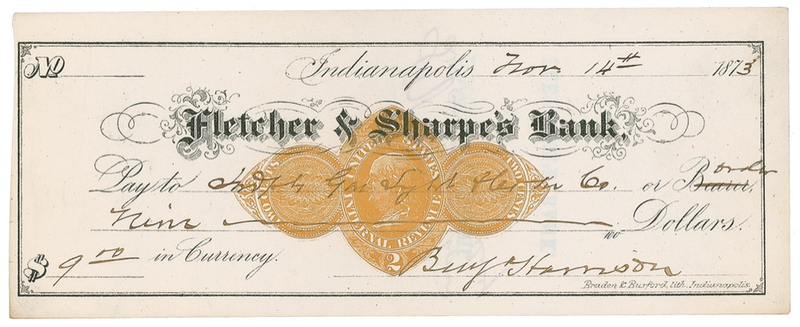 No Indianapolis Nov 14th 1873
Fletcher & Sharpe's Bank,
Pay to Indpls Gas Light & Co. or Bearer, order
Nine 100 Dollars.
$ 9.00 in Currency. Benj Harrison
UNITED STATES INTERNAL REVENUE
2
Braden & Burford, lith. Indianapolis.